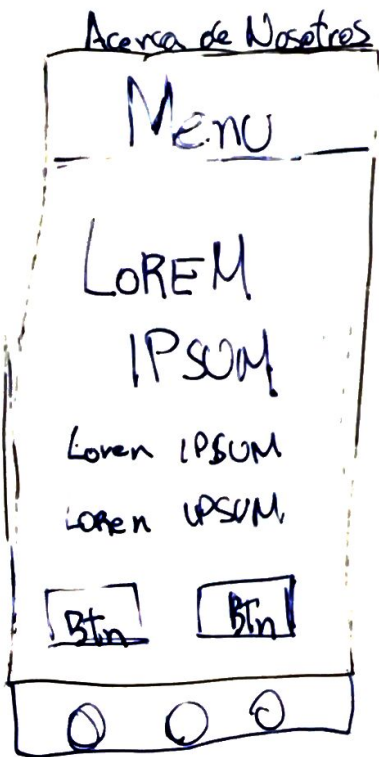 Acerca de Nosotros
Menu
LOREM
IPSUM
Loren IPSUM
LOREn IPSUM
Btn Btn